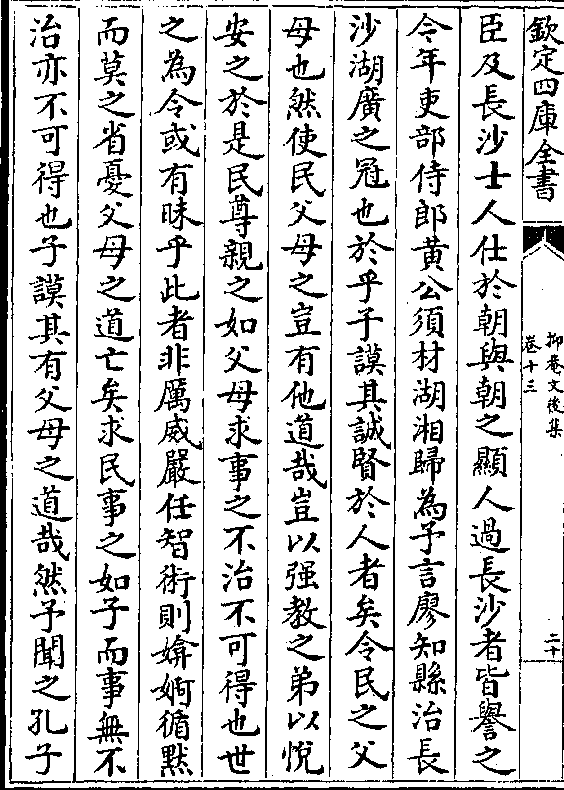 欽定四庫全書
抑菴文後集
卷十三
二十
臣及長沙士人仕於朝與朝之顯人過長沙者皆譽之
今年吏部侍郎黃公須材湖湘歸為予言廖知縣治長
沙湖廣之冠也於乎子謨其誠賢於人者矣令民之父
母也然使民父母之豈有他道哉豈以强教之弟以悅
安之於是民尊親之如父母求事之不治不可得也世
之為令或有昧乎此者非厲威嚴任智術則媕婀循默
而莫之省憂父母之道亡矣求民事之如子而事無不
治亦不可得也子謨其有父母之道哉然予聞之孔子